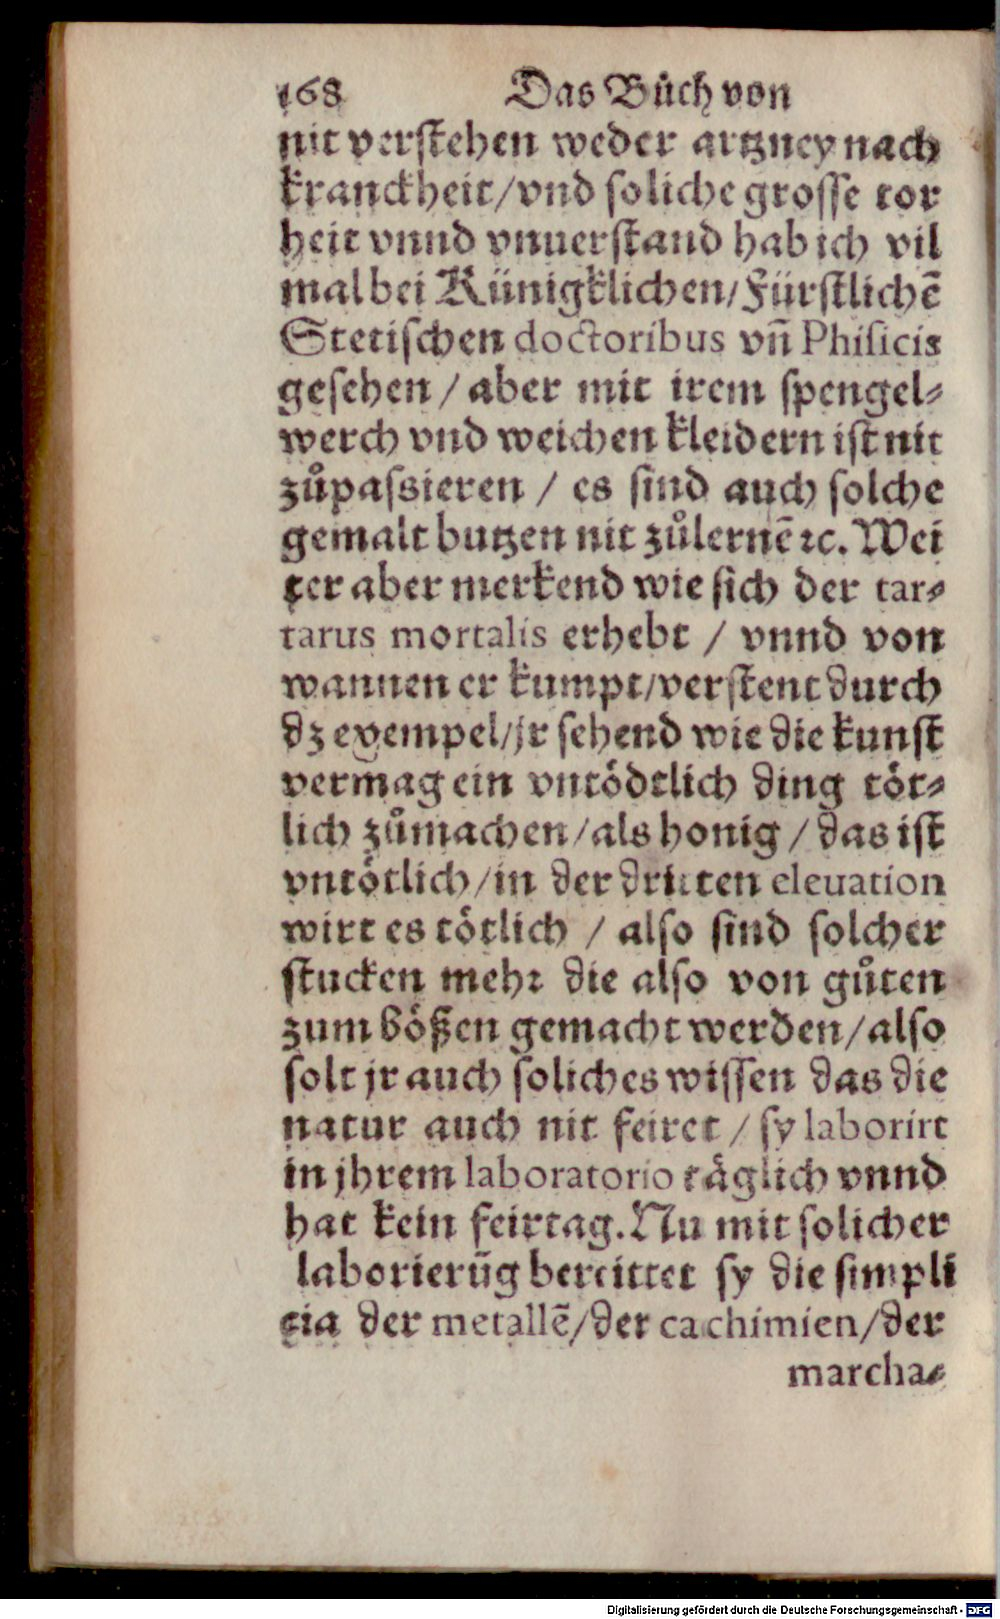 168 Das Bůch von
nit verstehen weder artzney nach
kranckheit/vnd soliche grosse tor
heit vnnd vnuerstand hab ich vil
mal bei Künigklichen/Fürstlichē
Stetischen doctoribus vñ Phisicis
gesehen / aber mit irem spengel⸗
werch vnd weichen kleidern ist nit
zůpassieren / es sind auch solche
gemalt butzen nit zůlernē ꝛc. Wei
ter aber merkend wie sich der tar⸗
tarus mortalis erhebt / vnnd von
wannen er kumpt/verstent durch
dz exempel/jr sehend wie die kunst
vermag ein vntödtlich ding töt⸗
lich zůmachen/als honig / das ist
vntötlich/in der dritten eleuation
wirt es tötlich / also sind solcher
stucken mehr die also von gůten
zum bößen gemacht werden/also
solt jr auch soliches wissen das die
natur auch nit feiret / sy laborirt
in jhrem laboratorio täglich vnnd
hat kein feirtag. Nu mit solicher
laborierūg bereittet sy die simpli
cia der metallē/der cachimien/der
marcha⸗
Digitalisierung gefördert durch die Deutsche Forschungsgemeinschaft - DFG